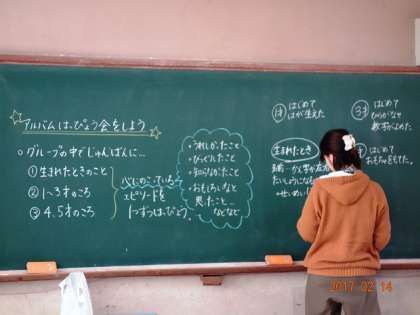 アルバムはっぴょう会をしよう
○グループの中でじゅんばんに…
①生まれたときのこと
②1~3才のころ
③4.5才のころ
心にのこっている
エピソードを
1つずつはっぴょう。
・うれしかったこと
・びっくりしたこと
・知らなかったこと
・おもしろいなと
思ったこと…
などなど
1才 はじめて
はが生えた
3才 はじめて
ひらがなや
数字がよめた
生まれたとき
はじめて
2017 02 14